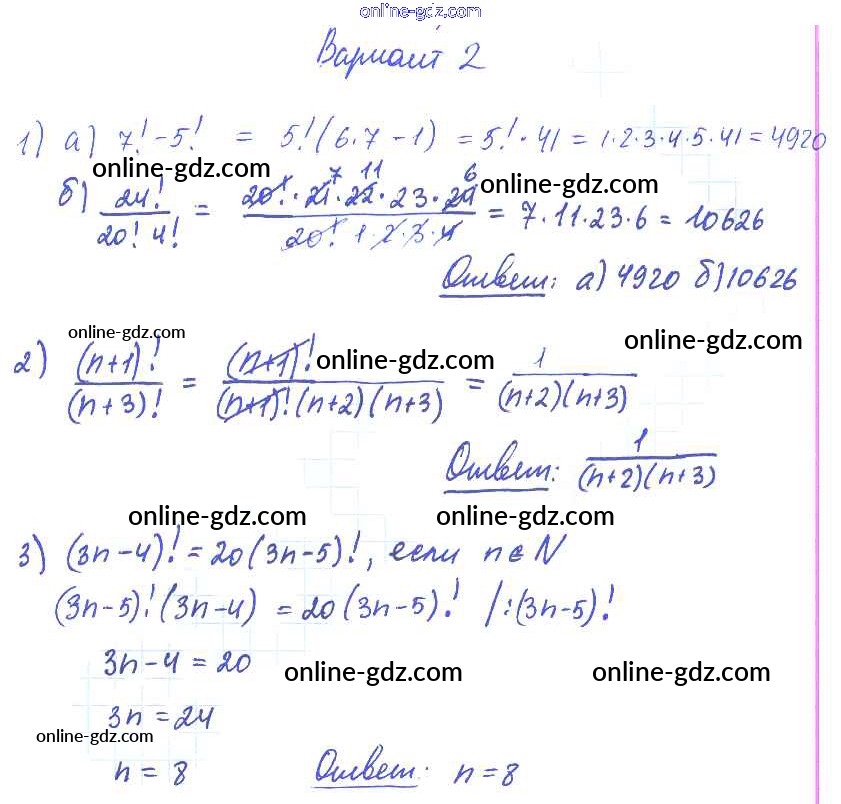 online-gdz.com
Вариант 2
1) а) 7! - 5! = 5!(6·7 - 1) = 5!·41 = 1·2·3·4·5·41 = 4920
online-gdz.com
7 11 6
online-gdz.com
б) 24!/(20! 4!) = (20!·21·22·23·24)/(20! 1·2·3·4) = 7·11·23·6 = 10626
Ответ: а) 4920 б) 10626
online-gdz.com
online-gdz.com
online-gdz.com
2) (n+1)!/(n+3)! = (n+1)!/((n+1)!(n+2)(n+3)) = 1/((n+2)(n+3))
Ответ: 1/((n+2)(n+3))
online-gdz.com
online-gdz.com
3) (3n-4)! = 20(3n-5)!, если n∈N
(3n-5)!(3n-4) = 20(3n-5)! /:(3n-5)!
3n-4 = 20
online-gdz.com
online-gdz.com
3n = 24
online-gdz.com
n = 8
Ответ: n = 8